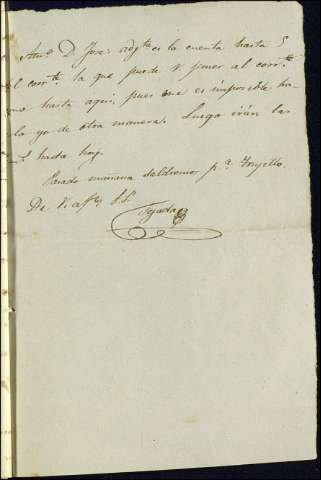 Am.º D. José: adj.ta es la cuenta hasta
el corr.te la que puede V. poner al corr.te
como hasta aqui, pues me es imposible ha-
cerlo yo de otra manera. Luego irán las
hasta hoy.
Pasado mañana saldremos p.ª Trujillo.
De V. af.mo S. S.
Tejada